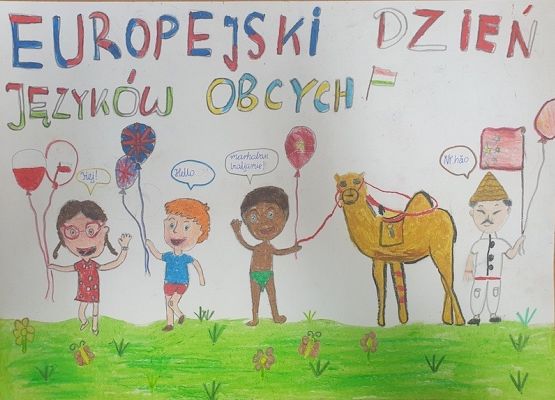 EUROPEJSKI DZIEŃ
JĘZYKÓW OBCYCH
Hej!
Hello
marhaban
Nǐ hǎo